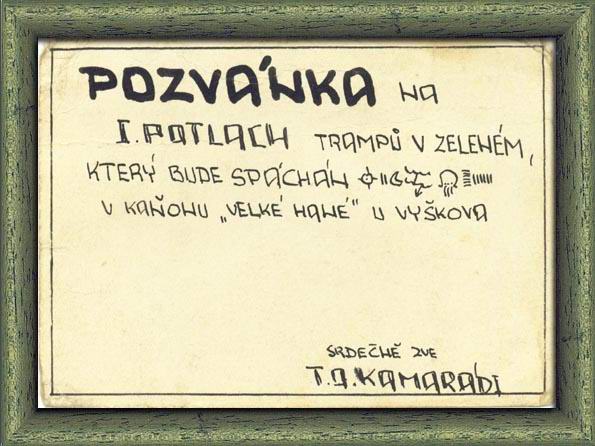 POZVÁNKA NA
I. POTLACH TRAMPŮ V ZELENÉM,
KTERÝ BUDE SPÁCHÁN
V KAŇONU „VELKÉ HANÉ" U VYŠKOVA
SRDEČNĚ ZVE
T.O. KAMARÁDI